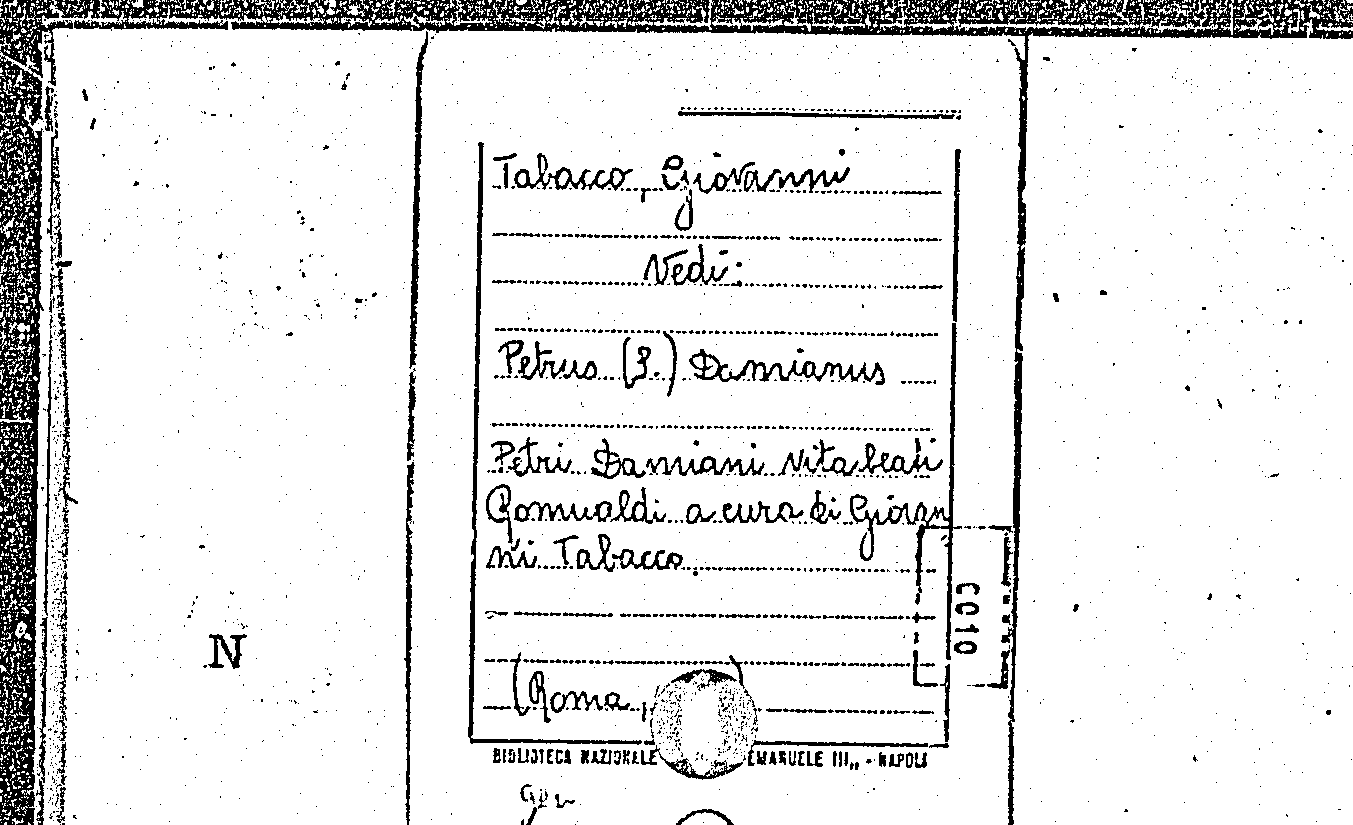 Tabacco, Giovanni
Vedi:
Petrus (S.) Damianus
Petri Damiani Vita beati
Romualdi a cura di Giovan
ni Tabacco.
(Roma,
BIBLIOTECA NAZIONALE EMANUELE III„ - NAPOLI
CC10
N